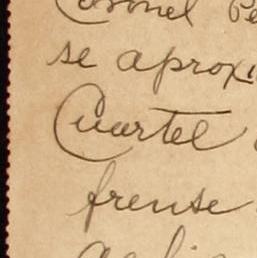 Coronel Pe
se aproxi
Cuartel
frense